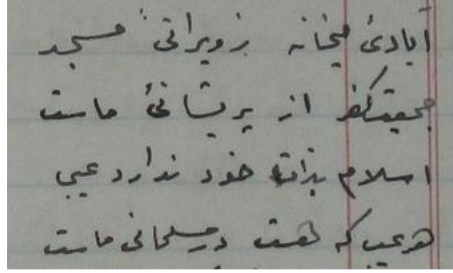 آبادئ میخانہ ز ویرانئ مسجد
جمعیت کفر از پریشانئ ماست
اسلام بذات خود ندارد عیبی
هر عیب که هست در مسلمانی ماست